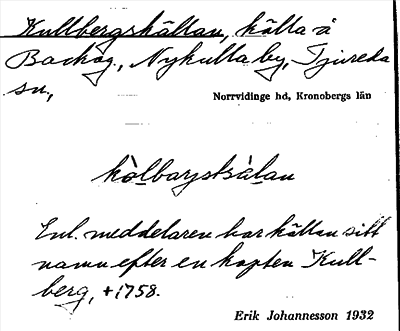 Kullbergskällan, källa å
Backag., Nykulla by, Tjureda
sn,
Norrvidinge hd, Kronobergs län
kòlbaryskàlan
Enl. meddelaren har källan sitt
namn efter en kapten Kull-
berg, +1758.
Erik Johannesson 1932